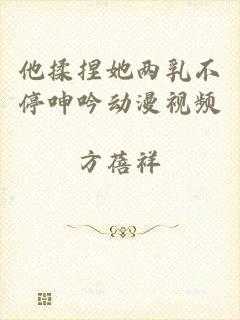 他揉捏她两乳不
停呻吟动漫视频
方蓓祥